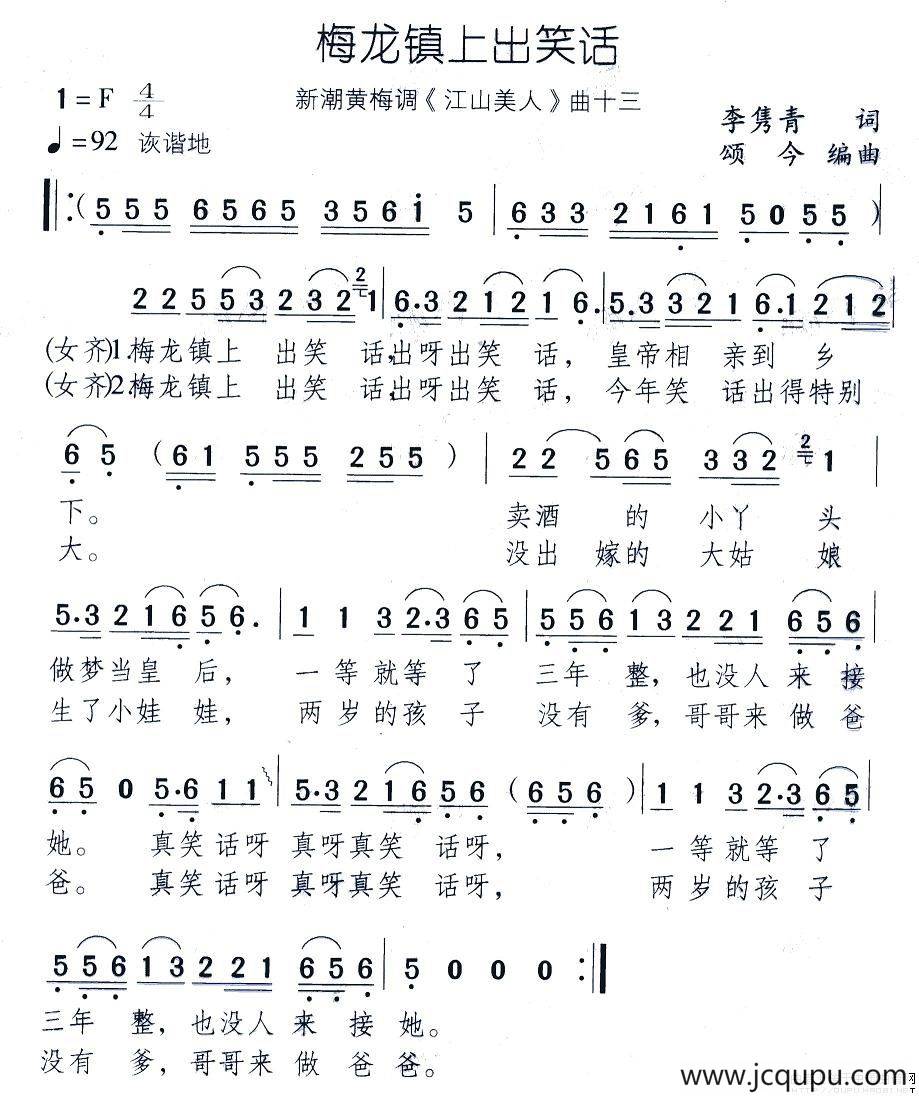 梅龙镇上出笑话
新潮黄梅调《江山美人》曲十三
1=F 4/4
♩=92 诙谐地
李隽青 词
颂今 编曲
‖:(5 5 5 6 5 6 5 3 5 6 i 5 | 6 3 3 2 1 6 1 5 0 5 5 )|
2 2 5 5 3 2 3 2 2 1 | 6·3 2 1 2 1 6· | 5·3 3 2 1 6·1 2 1 2
(女齐)1.梅龙镇上 出笑 话,出呀出笑 话, 皇帝相 亲到 乡
(女齐)2.梅龙镇上 出笑 话,出呀出笑 话, 今年笑 话出得特别
6 5 (6 1 5 5 5 2 5 5 )| 2 2 5 6 5 3 3 2 2 1 |
下。 卖酒 的 小丫 头
大。 没出 嫁的 大姑 娘
5·3 2 1 6 5 6· | 1 1 3 2·3 6 5 | 5 5 6 1 3 2 2 1 6 5 6 |
做梦当皇 后, 一等就等 了 三年 整,也没人 来 接
生了小娃 娃, 两岁的孩 子 没有 爹,哥哥来 做 爸
6 5 0 5·6 1 1 | 5·3 2 1 6 5 6 (5 6 5 6 )| 1 1 3 2·3 6 5 |
她。 真笑 话呀 真呀真笑 话呀, 一等就等 了
爸。 真笑 话呀 真呀真笑 话呀, 两岁的孩 子
5 5 6 1 3 2 2 1 6 5 6 | 5 0 0 0 :‖
三年 整,也没人 来 接她。
没有 爹,哥哥来 做 爸爸。
www.jcqupu.com